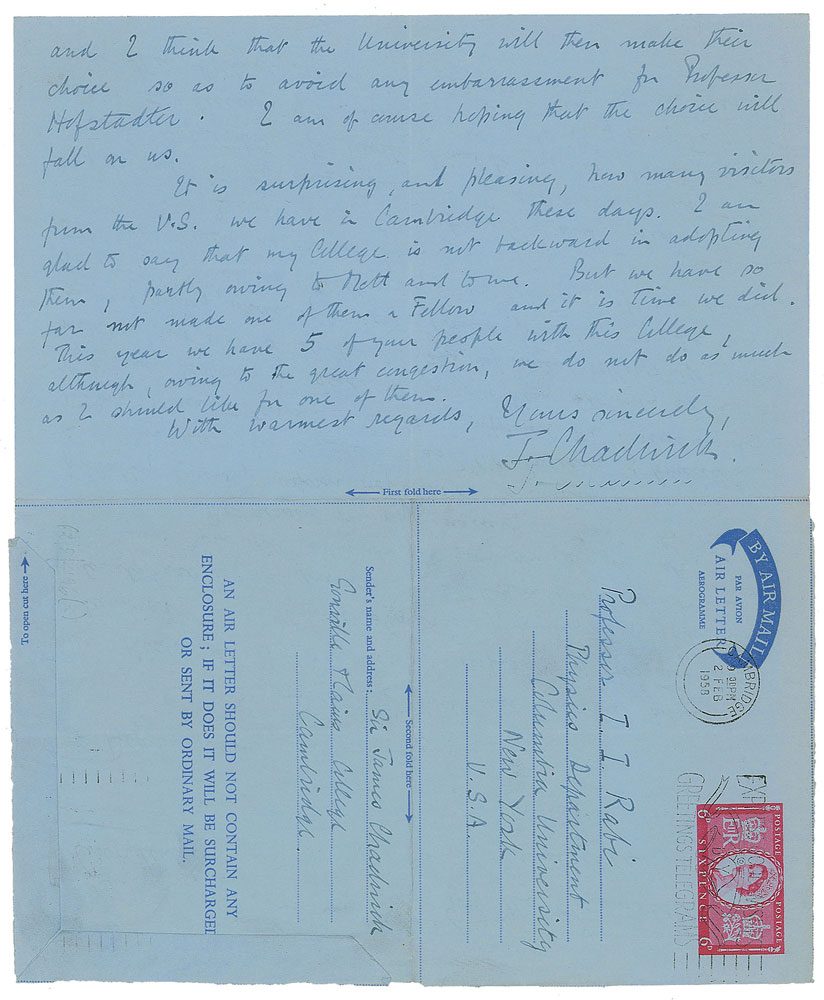 and I think that the University will then make their
choice so as to avoid any embarrassment for Professor
Hofstadter. I am of course hoping that the choice will
fall on us.
It is surprising, and pleasing, how many visitors
from the U.S. we have in Cambridge these days. I am
glad to say that my College is not backward in adopting
them, partly owing to Mott and to me. But we have so
far not made one of them a Fellow and it is time we did.
This year we have 5 of your people with this College,
although, owing to the great congestion, we do not do as much
as I should like for one of them.
With warmest regards, Yours sincerely,
J. Chadwick.
First fold here
To open cut here
AN AIR LETTER SHOULD NOT CONTAIN ANY
ENCLOSURE; IF IT DOES IT WILL BE SURCHARGED
OR SENT BY ORDINARY MAIL.
Sender's name and address: Sir James Chadwick
Gonville & Caius College
Cambridge.
Second fold here
BY AIR MAIL
PAR AVION
AIR LETTER
AEROGRAMME
Professor I. I. Rabi
Physics Department
Columbia University
New York
U.S.A.
CAMBRIDGE
30PM
2 FEB
1958
GREETINGS TELEGRAMS
POSTAGE POSTAGE
E R
6D SIXPENCE 6D